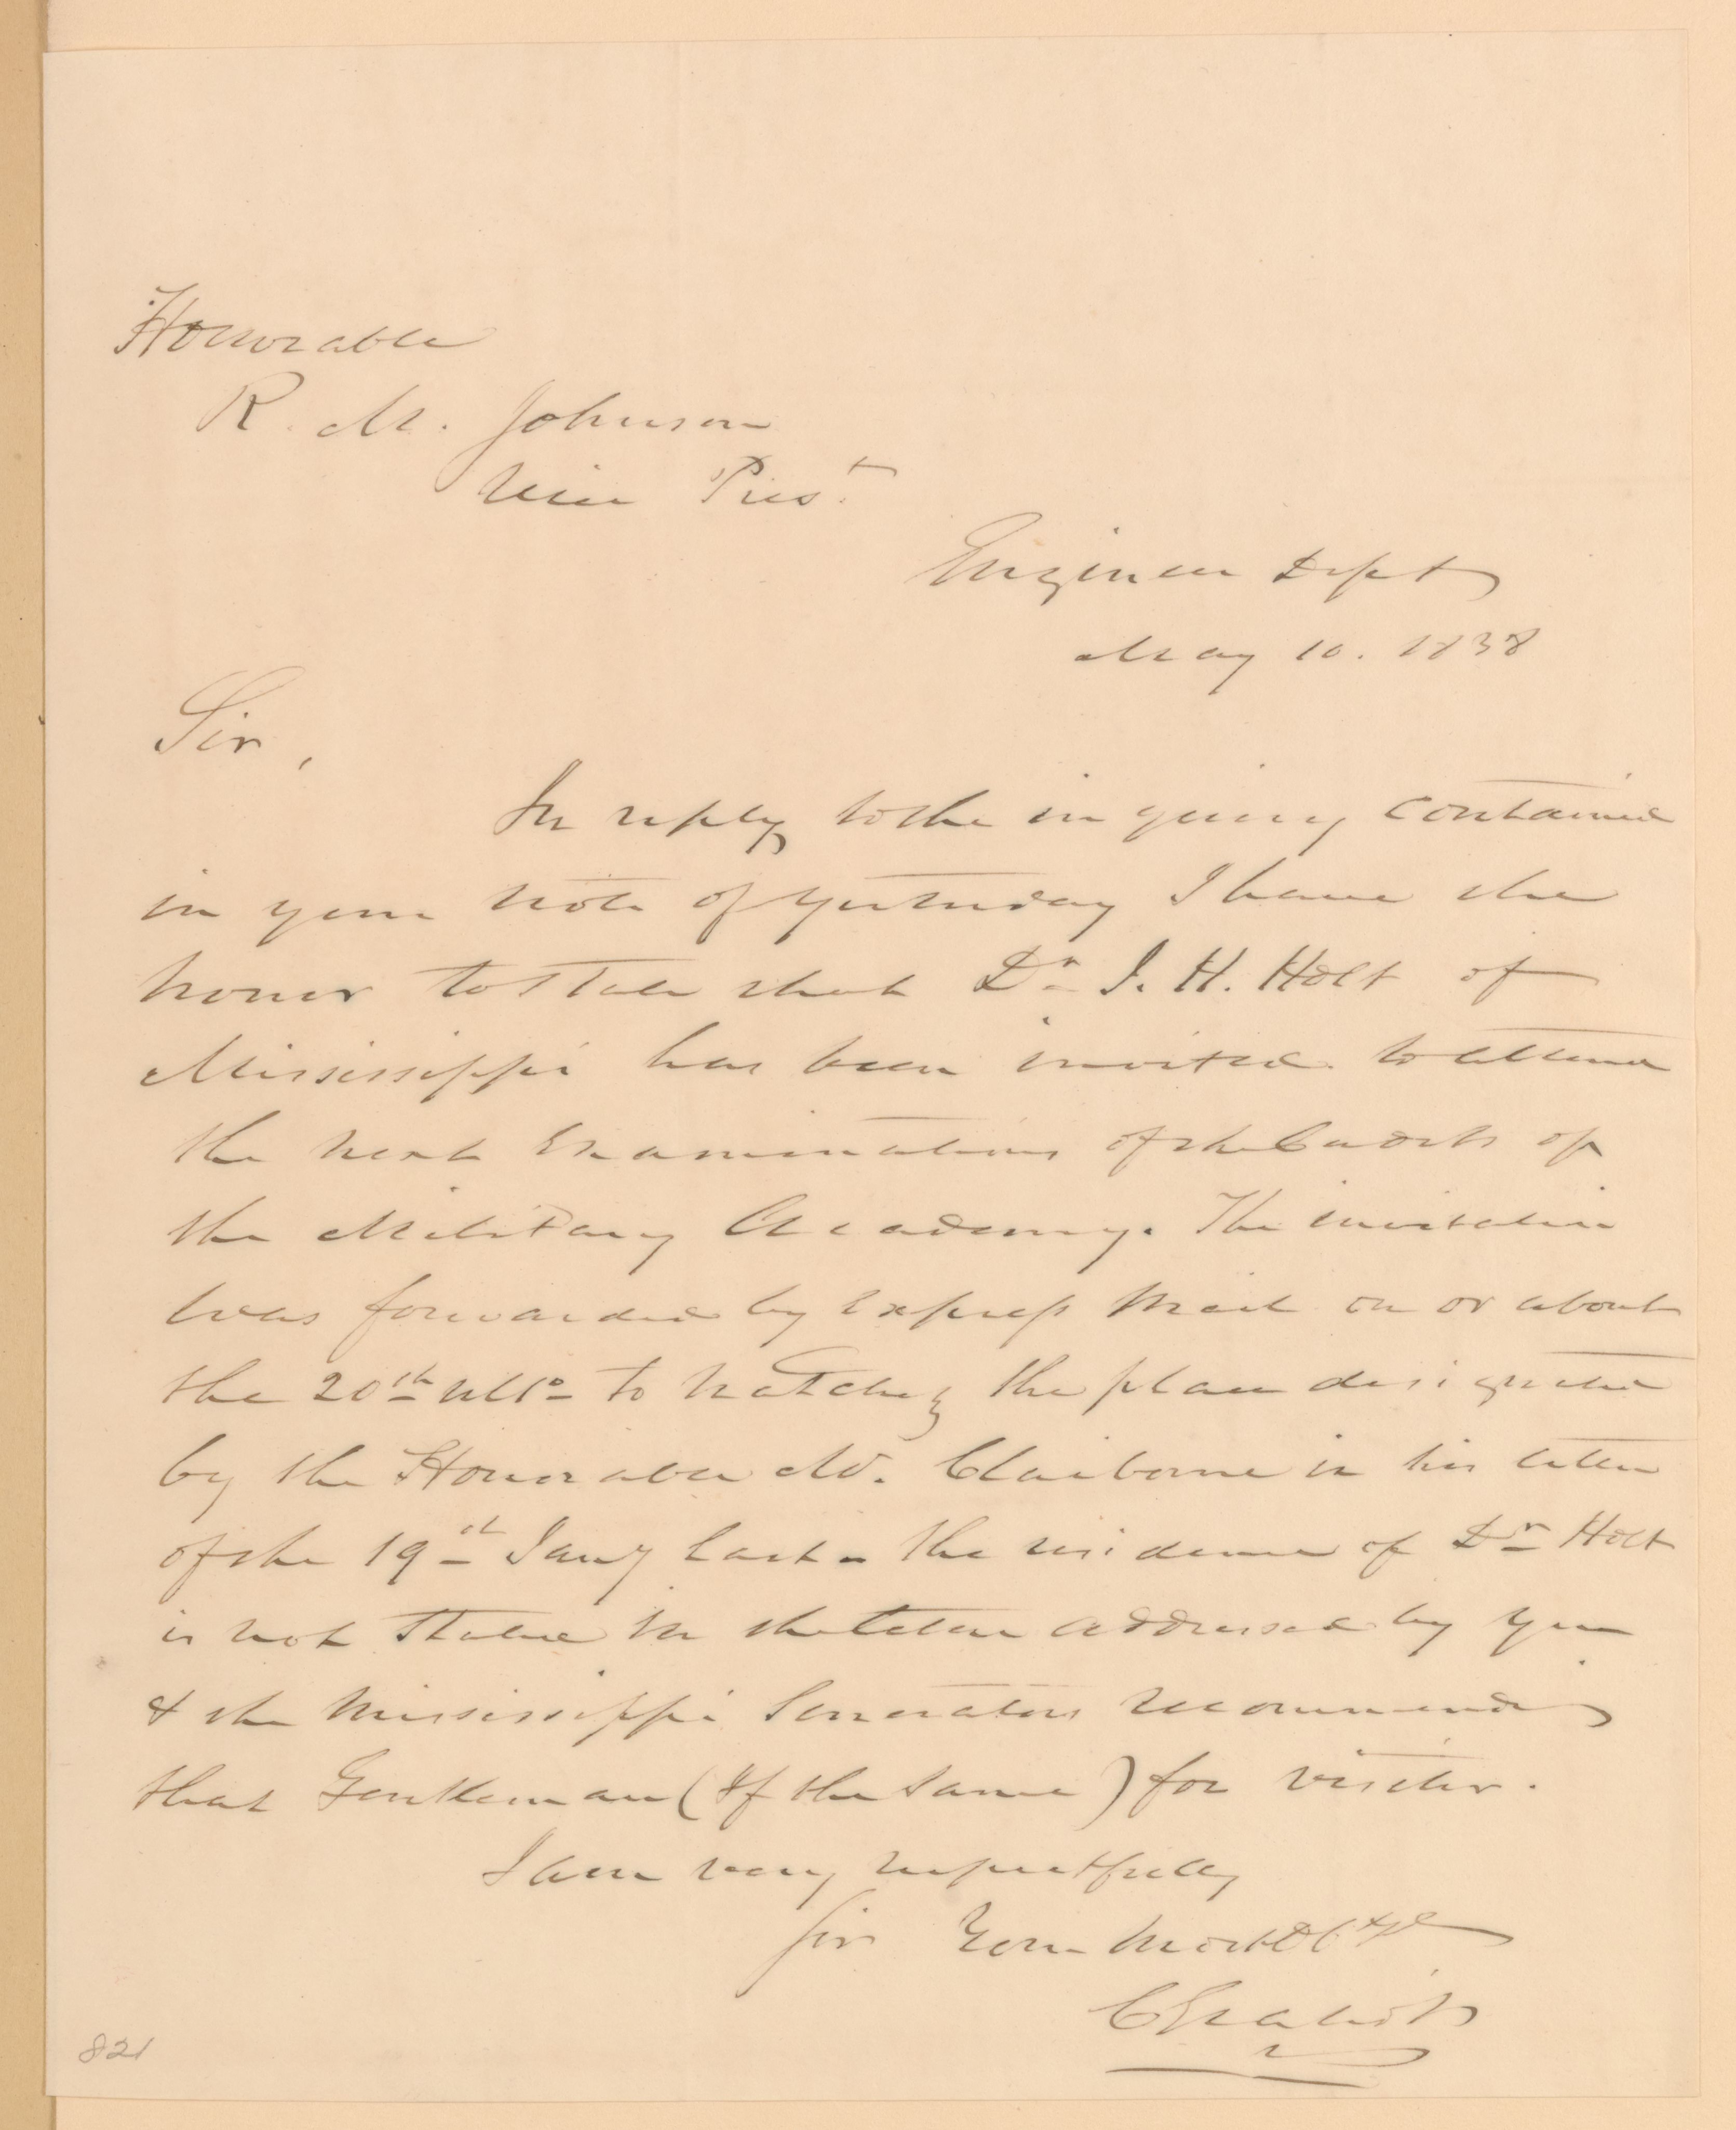 Honorable
R. M. Johnson
Vice Prest.
Engineer Dept
May 10. 1838
Sir,
In reply to the inquiry contained
in your note of yesterday I have the
honor to state that Dr. J. H. Holt of
Mississippi has been invited to attend
the next Examination of the Cadets of
the Military Academy. The invitation
was forwarded by express mail on or about
the 20th ulto to Natchez the place designated
by the Honorable Mr. Claiborne in his letter
of the 19th Jany last - the residence of Dr Holt
is not stated in the letter addressed by you
& the Mississippi Senators recommending
that Gentleman (if the same) for visiter.
I am very respectfully
Sir Your Most Obt &c
C Gratiot
821